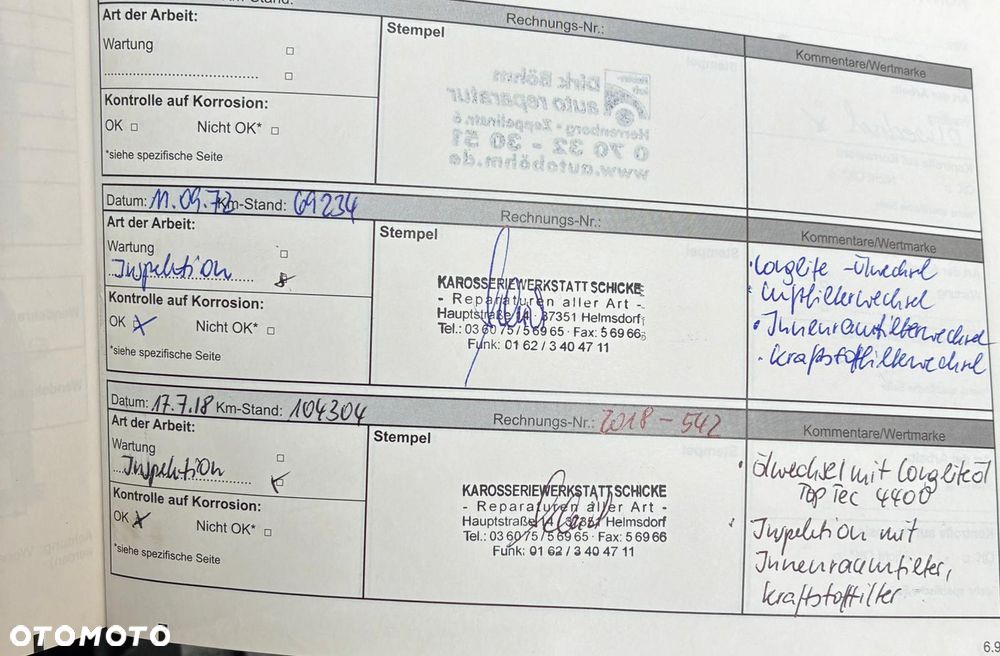 Km-Stand:
Art der Arbeit:
Wartung
Kontrolle auf Korrosion:
OK Nicht OK*
*siehe spezifische Seite
Rechnungs-Nr.:
Stempel
Dirk Böhm
auto reparatur
Herrenberg - Zeppelinstr. 6
0 70 32 - 30 51
www.autoböhm.de
Kommentare/Wertmarke
Datum: 11.09. Km-Stand: 69234
Art der Arbeit:
Wartung
Inspektion
Kontrolle auf Korrosion:
OK x Nicht OK*
*siehe spezifische Seite
Rechnungs-Nr.:
Stempel
KAROSSERIEWERKSTATT SCHICKE
- Reparaturen aller Art -
Hauptstraße 14 · 37351 Helmsdorf
Tel.: 03 60 75 / 5 69 65 · Fax: 5 69 66
Funk: 01 62 / 3 40 47 11
Kommentare/Wertmarke
· Longlife - Ölwechsel
· Luftfilterwechsel
· Innenraumfilterwechsel
· Kraftstofffilterwechsel
Datum: 17.7.18 Km-Stand: 104304
Art der Arbeit:
Wartung
Inspektion
Kontrolle auf Korrosion:
OK x Nicht OK*
*siehe spezifische Seite
Rechnungs-Nr.: 2018 - 542
Stempel
KAROSSERIEWERKSTATT SCHICKE
- Reparaturen aller Art -
Hauptstraße 14 · 37351 Helmsdorf
Tel.: 03 60 75 / 5 69 65 · Fax: 5 69 66
Funk: 01 62 / 3 40 47 11
Kommentare/Wertmarke
· Ölwechsel mit Longlifeöl
Top Tec 4400
Inspektion mit
Innenraumfilter,
Kraftstofffilter
6.9
OTOMOTO